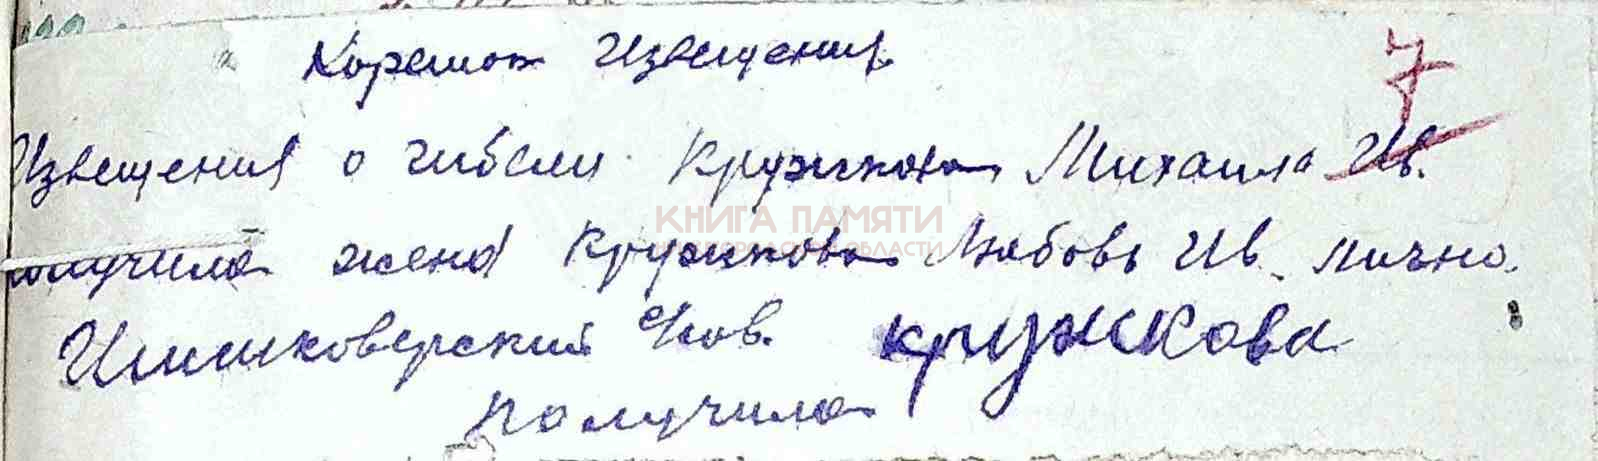 Корешок Извещения
7
Извещения о гибели Кружкова Михаила Ив.
КНИГА ПАМЯТИ
НИЖЕГОРОДСКОЙ ОБЛАСТИ
получила жена Кружкова Любовь Ив. лично.
Шишковердский с/сов. Кружкова
получила